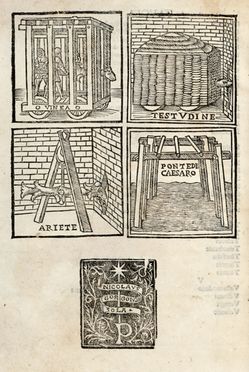 VINEA
TESTVDINE
ARIETE
PONTE DI
CAESARO
NICOLAVS
GORGON
ZOLA
P